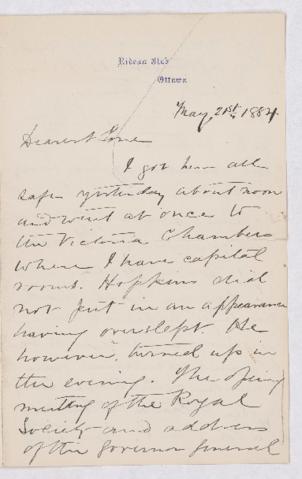 Rideau Club
Ottawa
May 21st. 1884.
Dearest
I got here all
safe yesterday about noon
and went at once to
the Victoria Chambers
where I have capital
rooms. Hopkins did
not put in an appearance
having overslept. He
however, turned up in
the evening. The opening
meeting of the Royal
Society and address
of the Governor General